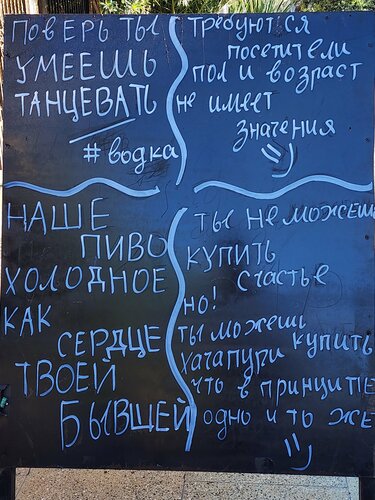 ПОВЕРЬ ТЫ
УМЕЕШЬ
ТАНЦЕВАТЬ
#водка
требуются
посетители
пол и возраст
не имеет
значения
НАШЕ
ПИВО
ХОЛОДНОЕ
КАК
СЕРДЦЕ
ТВОЕЙ
БЫВШЕЙ
ты не можешь
купить
счастье
но!
ты можешь
хачапури купить
что в принципе
одно и то же